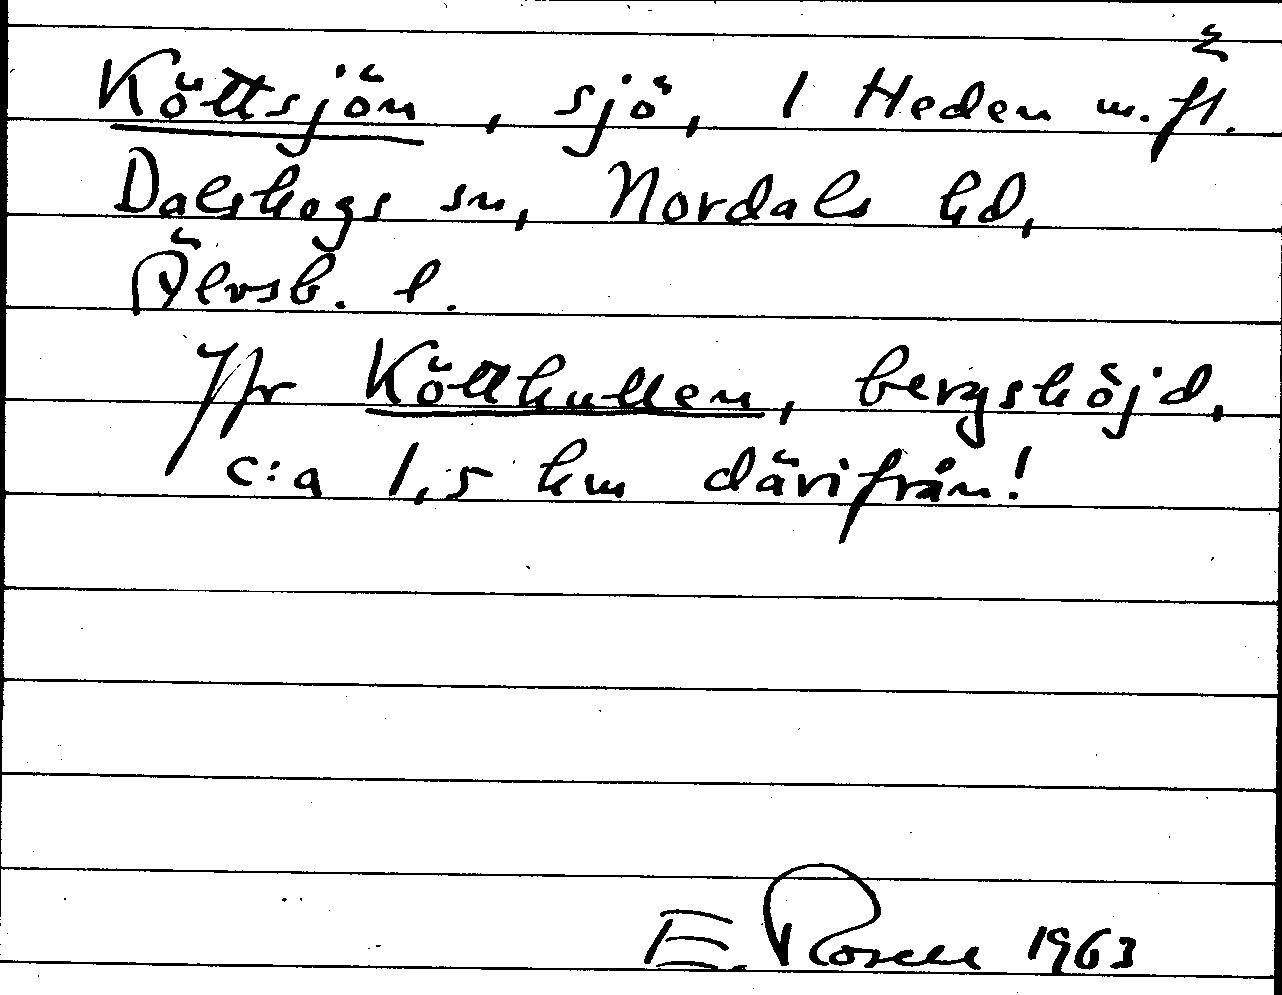 Köttsjön, sjö, 1 Heden m. fl.
Dalskogs sn, Nordals hd,
Älvsb. l.
Jfr Kötthullen, bergshöjd,
c:a 1,5 km därifrån!
E. Rosell 1963